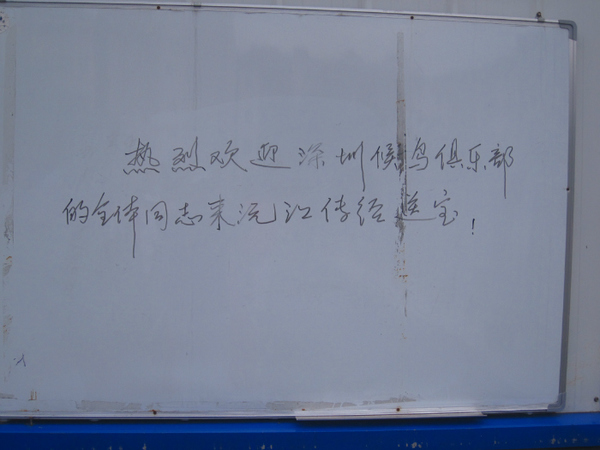 热烈欢迎深圳候鸟俱乐部
的全体同志来沅江传经送宝！